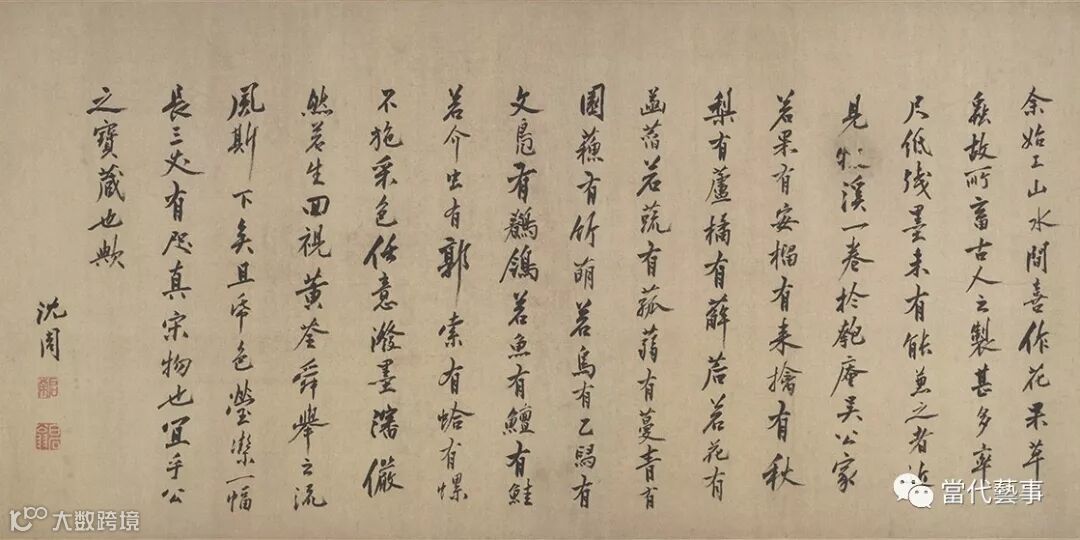 余始工山水間喜作花果草
蟲故所畜古人之製甚多率
尺紙殘墨未有能兼之者近
見牧溪一卷於匏庵吳公家
若果有安榴有来檎有秋
梨有蘆橘有薢若花有
菡萏若蔬有菰蒻有蔓青有
園蘓有竹萌若鳥有乙舄有
文鳧有鶺鴒若魚有鱣有鮭
若介虫有郭索有蛤有螺
不施采色任意潑墨瀋儼
然若生回視黄筌舜舉之流
風斯下矣且帋色瑩潔一幅
長三丈有咫真宋物也宜乎公
之寶藏也歟
沈周
當代藝事
大数跨境